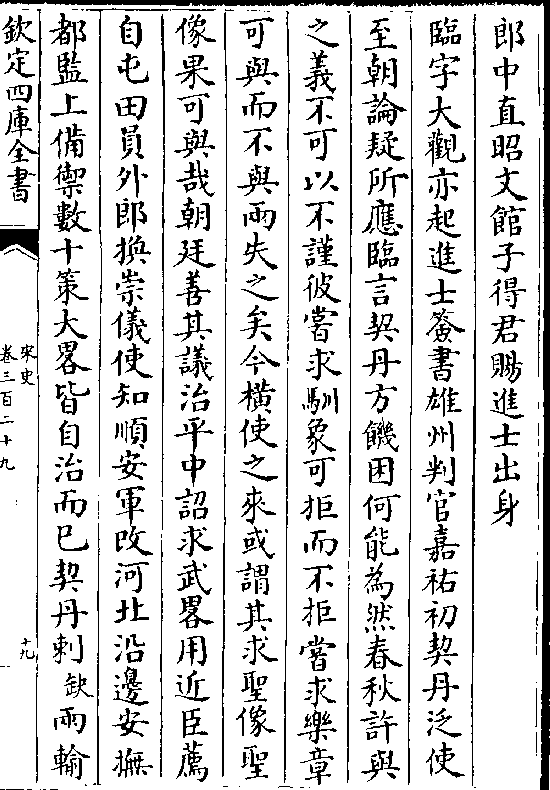 郎中直昭文館子得君賜進士出身
臨字大觀亦起進士簽書雄州判官嘉祐初契丹泛使
至朝論疑所應臨言契丹方饑困何能為然春秋許與
之義不可以不謹彼嘗求馴象可拒而不拒嘗求樂章
可與而不與兩失之矣今橫使之來或謂其求聖像聖
像果可與哉朝廷善其議治平中詔求武畧用近臣薦
自屯田員外郎換崇儀使知順安軍改河北沿邊安撫
都監上備禦數十策大畧皆自治而已契丹刺缺兩輸
欽定四庫全書
宋史
卷三百二十九
十九